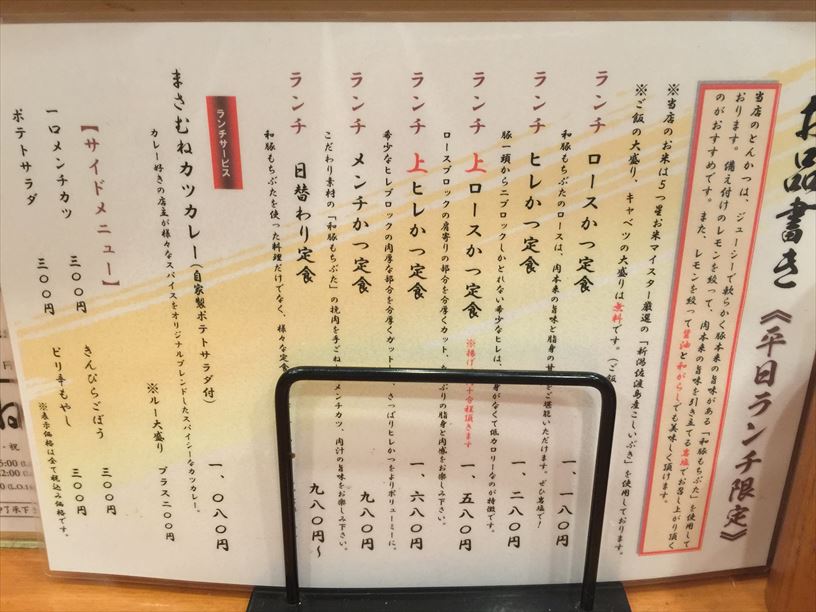 お品書き《平日ランチ限定》
当店のとんかつは、ジューシーで軟らかく豚本来の旨味がある「和豚もちぶた」を使用して
おります。備え付けのレモンを絞って、肉本来の旨味を引き立てる岩塩でお召し上がり頂く
のがおすすめです。また、レモンを絞って醤油と和がらしでも美味しく頂けます。
※当店のお米は5つ星お米マイスター厳選の「新潟佐渡島産こしいぶき」を使用しております。
※ご飯の大盛り、キャベツの大盛りは無料です。(ご飯
ランチ ロースかつ定食 一、一八〇円
和豚もちぶたのロースは、肉本来の旨味と脂身の甘 をご堪能いただけます。ぜひ岩塩で!
ランチ ヒレかつ定食 一、二八〇円
豚一頭から二ブロックしかとれない希少なヒレは、 身がなくて低カロリーなのが特徴です。
ランチ 上ロースかつ定食 ※揚げ 十分程頂きます 一、五八〇円
ロースブロックの肩寄りの部分を分厚くカット、 ぷりの脂身と肉感をお楽しみ下さい。
ランチ 上ヒレかつ定食 一、六八〇円
希少なヒレブロックの肉厚な部分を分厚くカット 、さっぱりヒレかつをよりボリューミーに。
ランチ メンチかつ定食 九八〇円
こだわり素材の「和豚もちぶた」の挽肉を手ごね メンチカツ、肉汁の旨味をお楽しみ下さい。
ランチ 日替わり定食 九八〇円〜
和豚もちぶたを使った料理だけでなく、様々な定食
ランチサービス
まさむねカツカレー(自家製ポテトサラダ付) 一、〇八〇円
カレー好きの店主が様々なスパイスをオリジナルブレンドしたスパイシーなカツカレー。
※ルー大盛り プラス二〇〇円
【サイドメニュー】
一口メンチカツ 三〇〇円 きんぴらごぼう 三〇〇円
ポテトサラダ 三〇〇円 ピリ辛もやし 三〇〇円
※表示価格は全て税込み価格です。